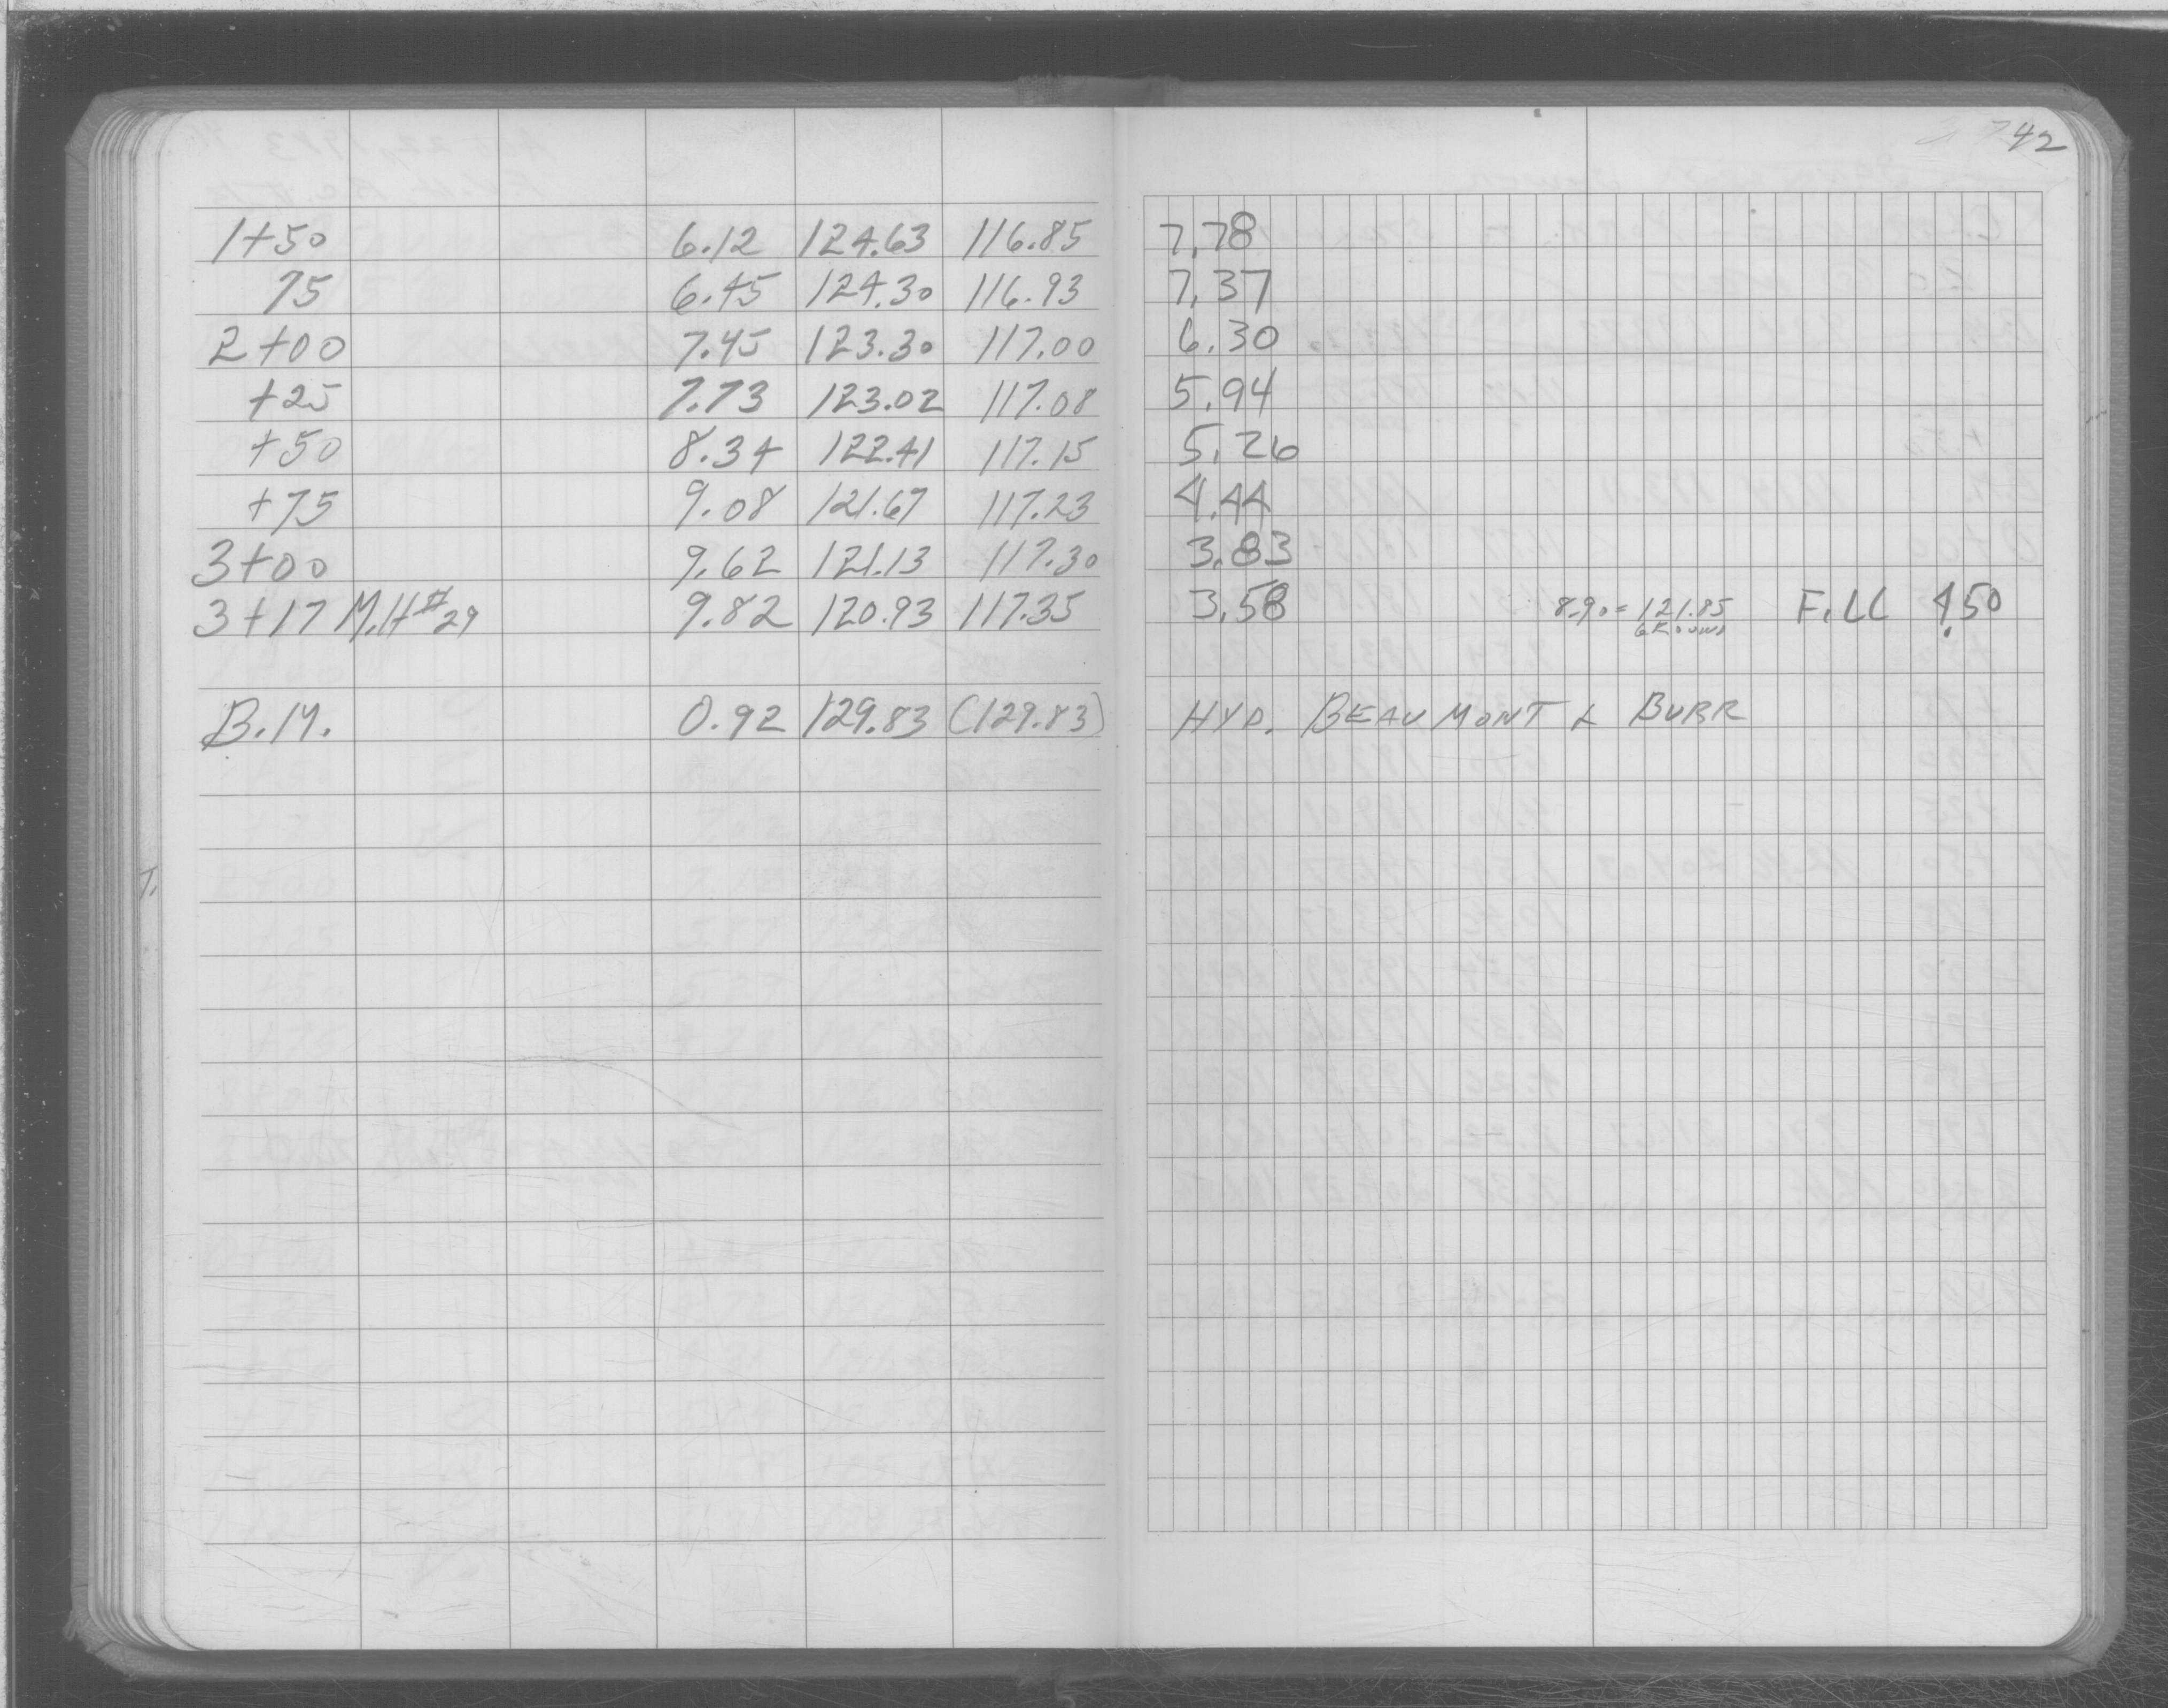 42
1+50 6.12 124.63 116.85 7.78
75 6.45 124.30 116.93 7.37
2+00 7.45 123.30 117.00 6.30
+25 7.73 123.02 117.08 5.94
+50 8.34 122.41 117.15 5.26
+75 9.08 121.67 117.23 4.44
3+00 9.62 121.13 117.30 3.83
3+17 M.H#29 9.82 120.93 117.35 3.58 8.90=121.85 FILL 4.50
GROUND
B.M. 0.92 129.83 (129.83) HYD. BEAUMONT & BURR